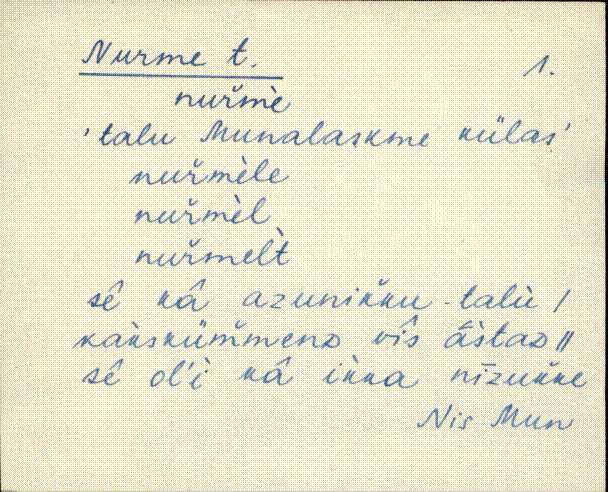 Nurme t. 1.
nuřmè
'talu Munalaskme külas'
nuřmèle
nuřmèl
nuřmelt̀
sê kâ azunik̆ku-talù /
kak̀sküm̆menD vîs âs̀taD //
sê ol'ì kâ ik̀ka nīzuk̆ke
Nis Mun